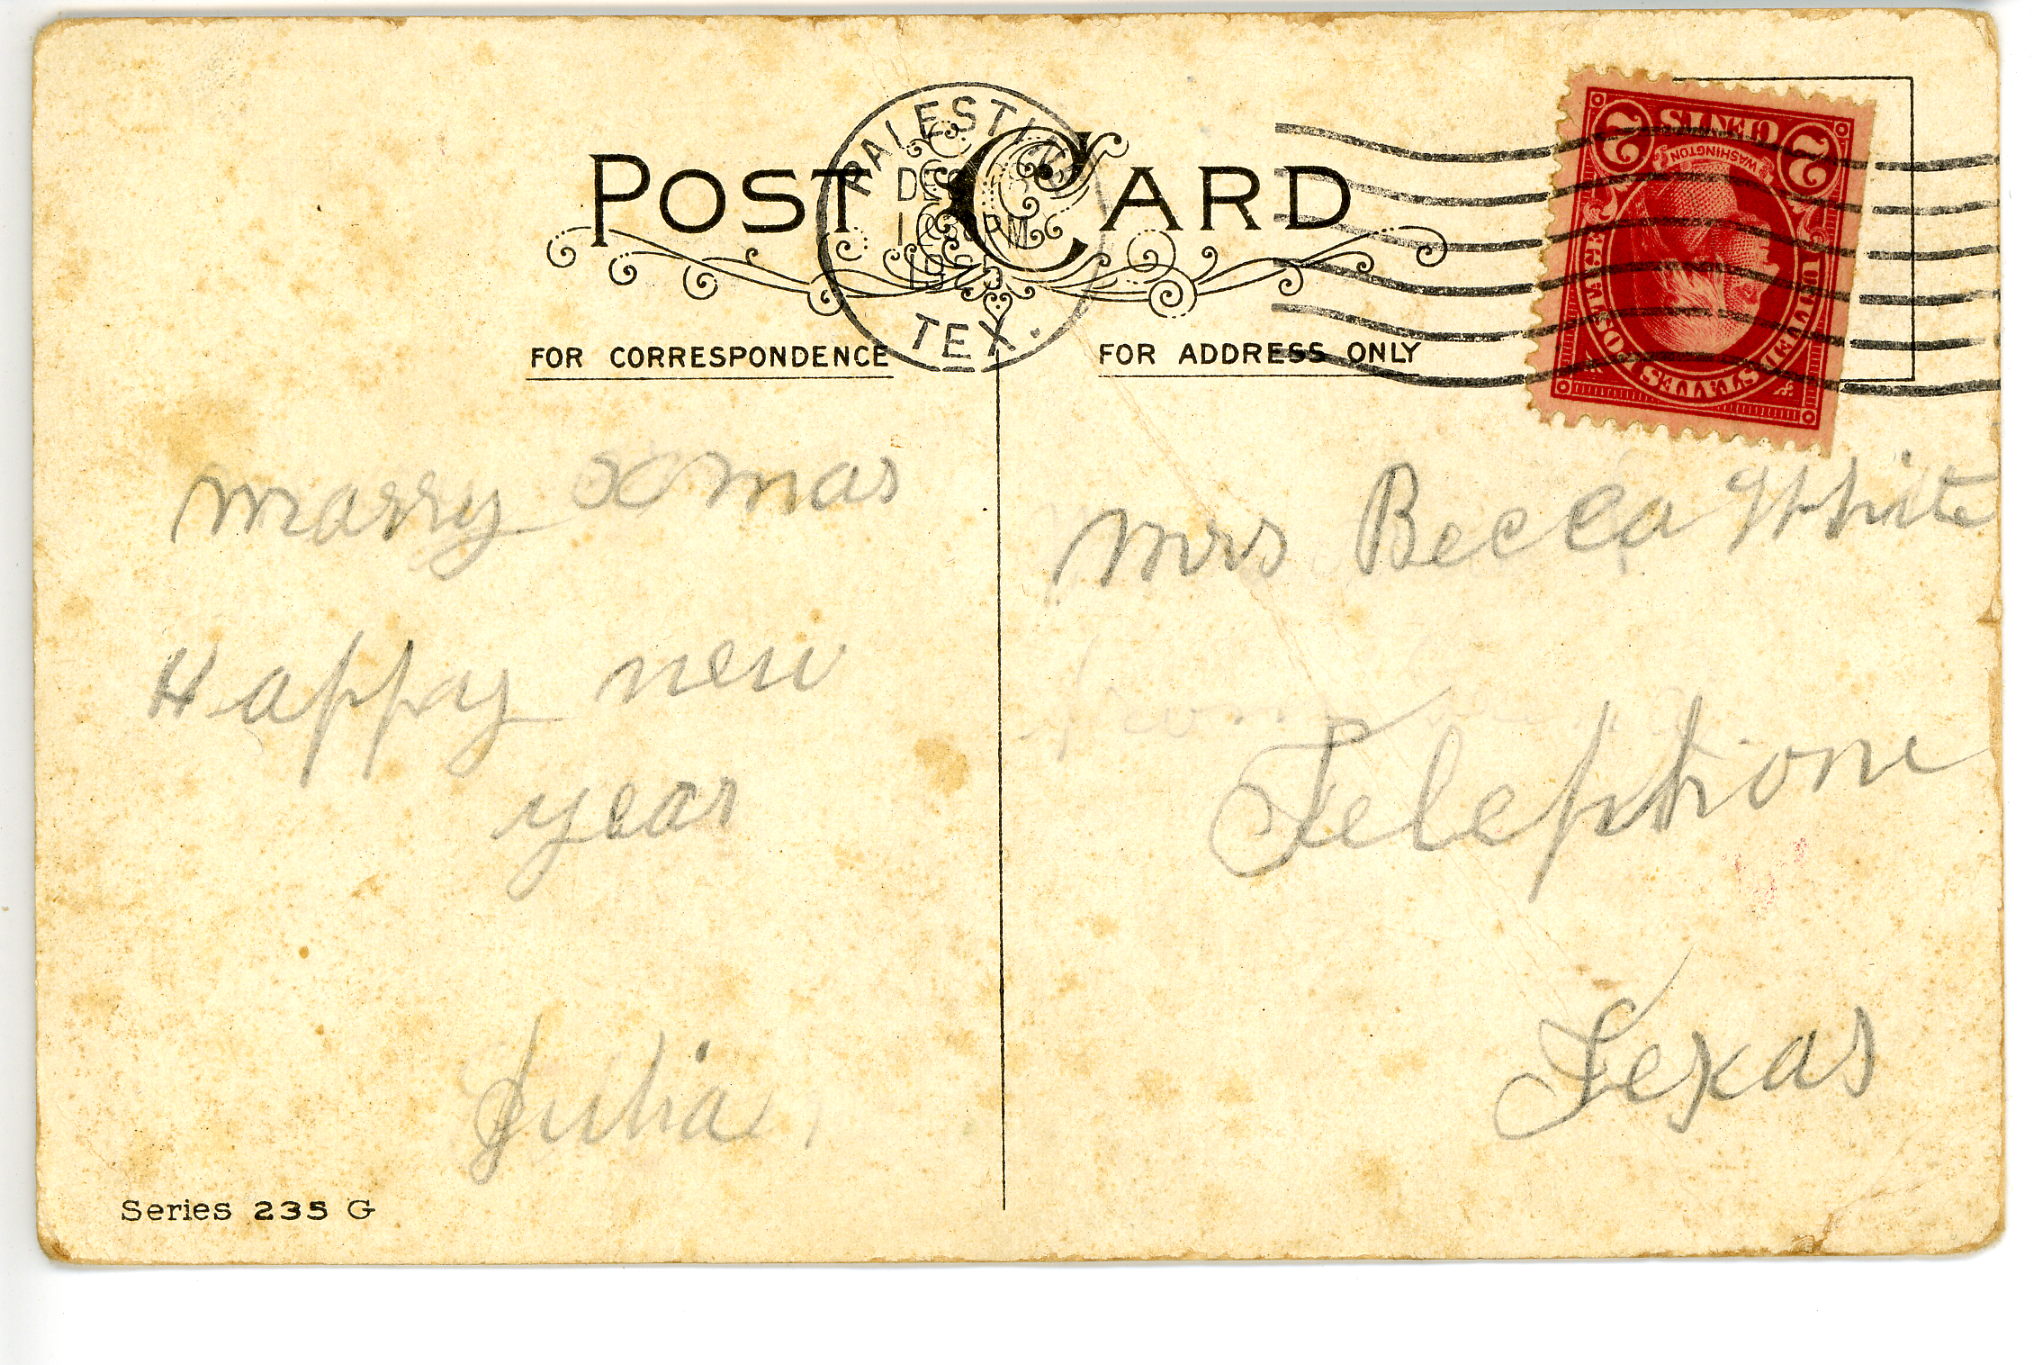 POST CARD
PALESTINE
DEC
PM
1925
TEX.
FOR CORRESPONDENCE
FOR ADDRESS ONLY
2 CENTS 2
WASHINGTON
UNITED STATES POSTAGE
marry Xmas
Happy new
year
Julia
Mrs Becca White
Telephone
Texas
Series 235 G